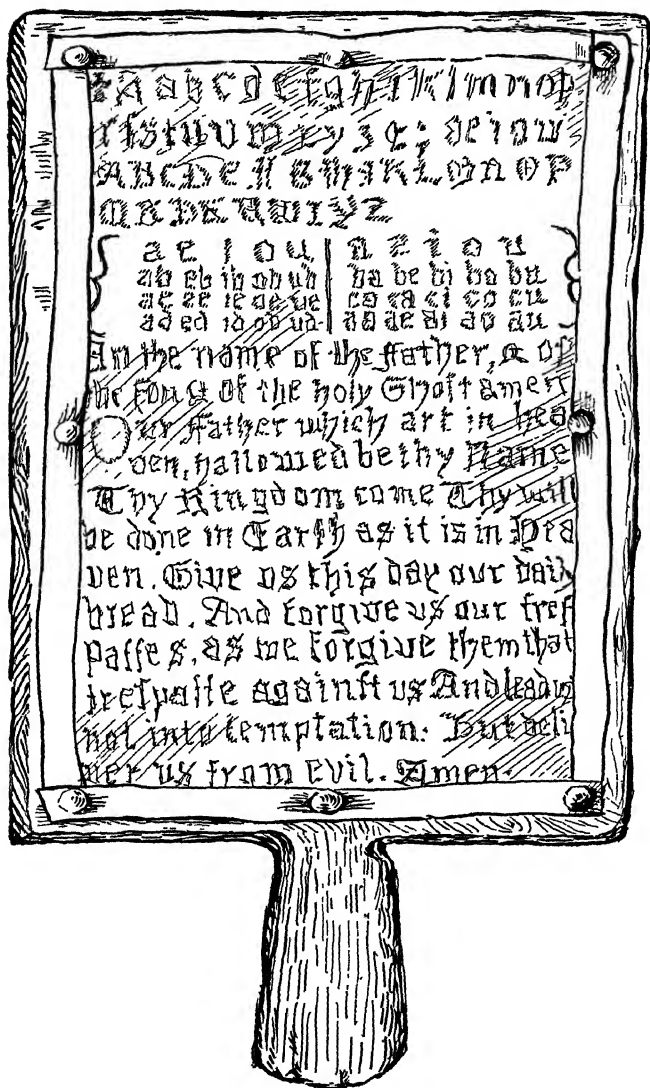 A a b c d e f g h i k l m n o p
r ſ s t u v w x y z & ; a e i o u
A B C D E F G H I K L M N O P
Q R S T U W X Y Z
a e i o u | a e i o u
ab eb ib ob ub | ba be bi bo bu
ac ec ic oc uc | ca ce ci co cu
ad ed id od ud | da de di do du
In the name of the Father, & of
the Son & of the Holy Ghoſt amen
Our Father which art in hea
ven, hallowed be thy Name
Thy Kingdom come Thy will
be done in Earth as it is in Hea
ven. Give us this day our daily
bread. And forgive us our treſ
paſſes, as we forgive them that
treſpaſſe againſt us And lead us
not into temptation: But deli
ver us from Evil. Amen.